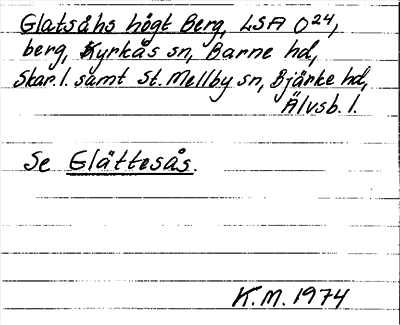 Glatsåhs högt Berg, LSA O24,
berg, Kyrkås sn, Barne hd,
Skar. l. samt St. Mellby sn, Bjärke hd,
Älvsb. l.
Se Glättesås.
K.M. 1974